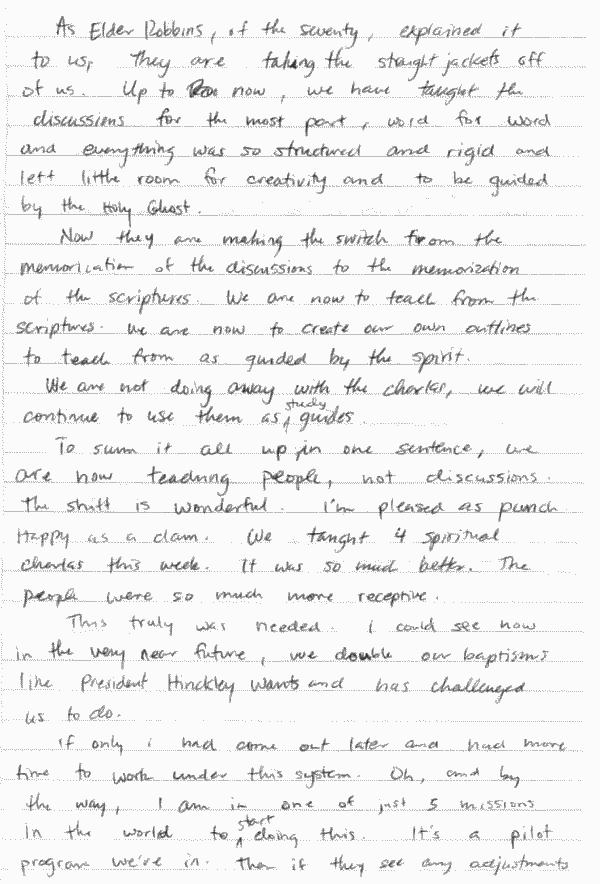 As Elder Robbins, of the seventy, explained it
to us, they are taking the straight jackets off
of us. Up to now, we have taught the
discussions for the most part, word for word
and everything was so structured and rigid and
left little room for creativity and to be guided
by the Holy Ghost.
Now they are making the switch from the
memorization of the discussions to the memorization
of the scriptures. We are now to teach from the
scriptures. We are now to create our own outlines
to teach from as guided by the spirit.
We are not doing away with the charlas, we will
continue to use them as study guides.
To sum it all up in one sentence, we
are now teaching people, not discussions.
The shift is wonderful. I'm pleased as punch
Happy as a clam. We taught 4 spiritual
charlas this week. It was so much better. The
people were so much more receptive.
This truly was needed. I could see how
in the very near future, we double our baptisms
like President Hinckley wants and has challenged
us to do.
If only i had come out later and had more
time to work under this system. Oh, and by
the way, I am in one of just 5 missions
in the world to start doing this. It's a pilot
program we're in. Then if they see any adjustments